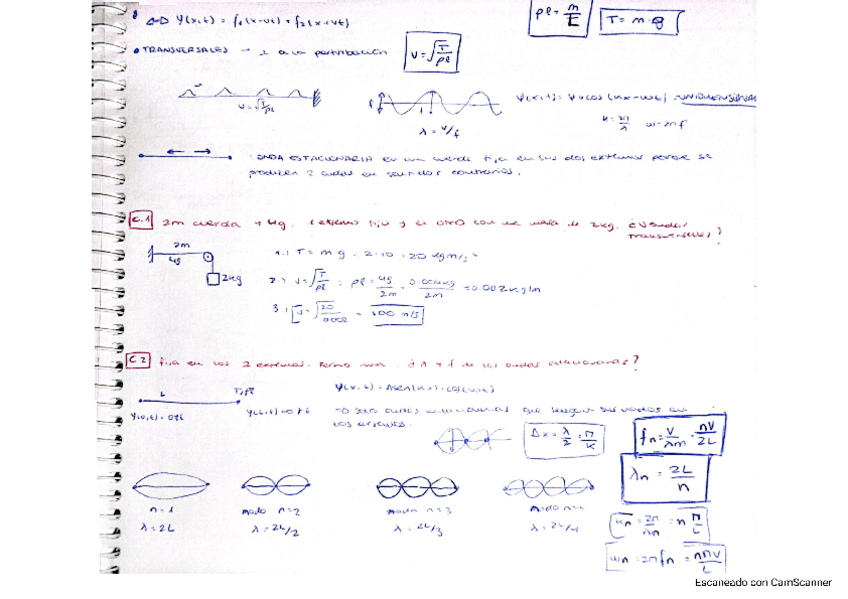 ⇔ Ψ(x,t) = f₁(x-vt) + f₂(x+vt)
ρl = m/E
T = m·g
• TRANSVERSALES → ⊥ a la perturbación
v = √(T/ρl)
v = √(T/ρl)
λ = v/f
Ψ(x,t) = Ψ0 cos (kx-wt) → UNIDIMENSIONAL
k = 2π/λ w = 2πf
ONDA ESTACIONARIA en una cuerda fija en sus dos extremos porque se
producen 2 ondas en sentidos contrarios.
C.1 2m cuerda 4g. 1 extremo fijo y el otro con una masa de 2kg. ¿V ondas
transversales?
2m
4g
2kg
1.: T = m·g = 2·10 = 20 kgm/s²
2.: v = √(T/ρl) ; ρl = 4g/2m = 0.004kg/2m = 0.002kg/m
3.: v = √(20/0.002) = 100 m/s
C.2 fija en los 2 extremos. ¿λ y f de las ondas estacionarias?
L
Ψ(x,t) = A sen(kx)·cos(wt)
Ψ(0,t) = 0 ∀t
Ψ(L,t) = 0 ∀t
→ Solo ondas estacionarias que tengan sus nodos en
los extremos.
Δx = λ/2 = π/k
fn = v/λn = nv/2L
λn = 2L/n
n=1
modo n=2
modo n=3
modo n=4
λ = 2L
λ = 2L/2
λ = 2L/3
λ = 2L/4
kn = 2π/λn = n π/L
wn = 2πfn = nπv/L
Escaneado con CamScanner